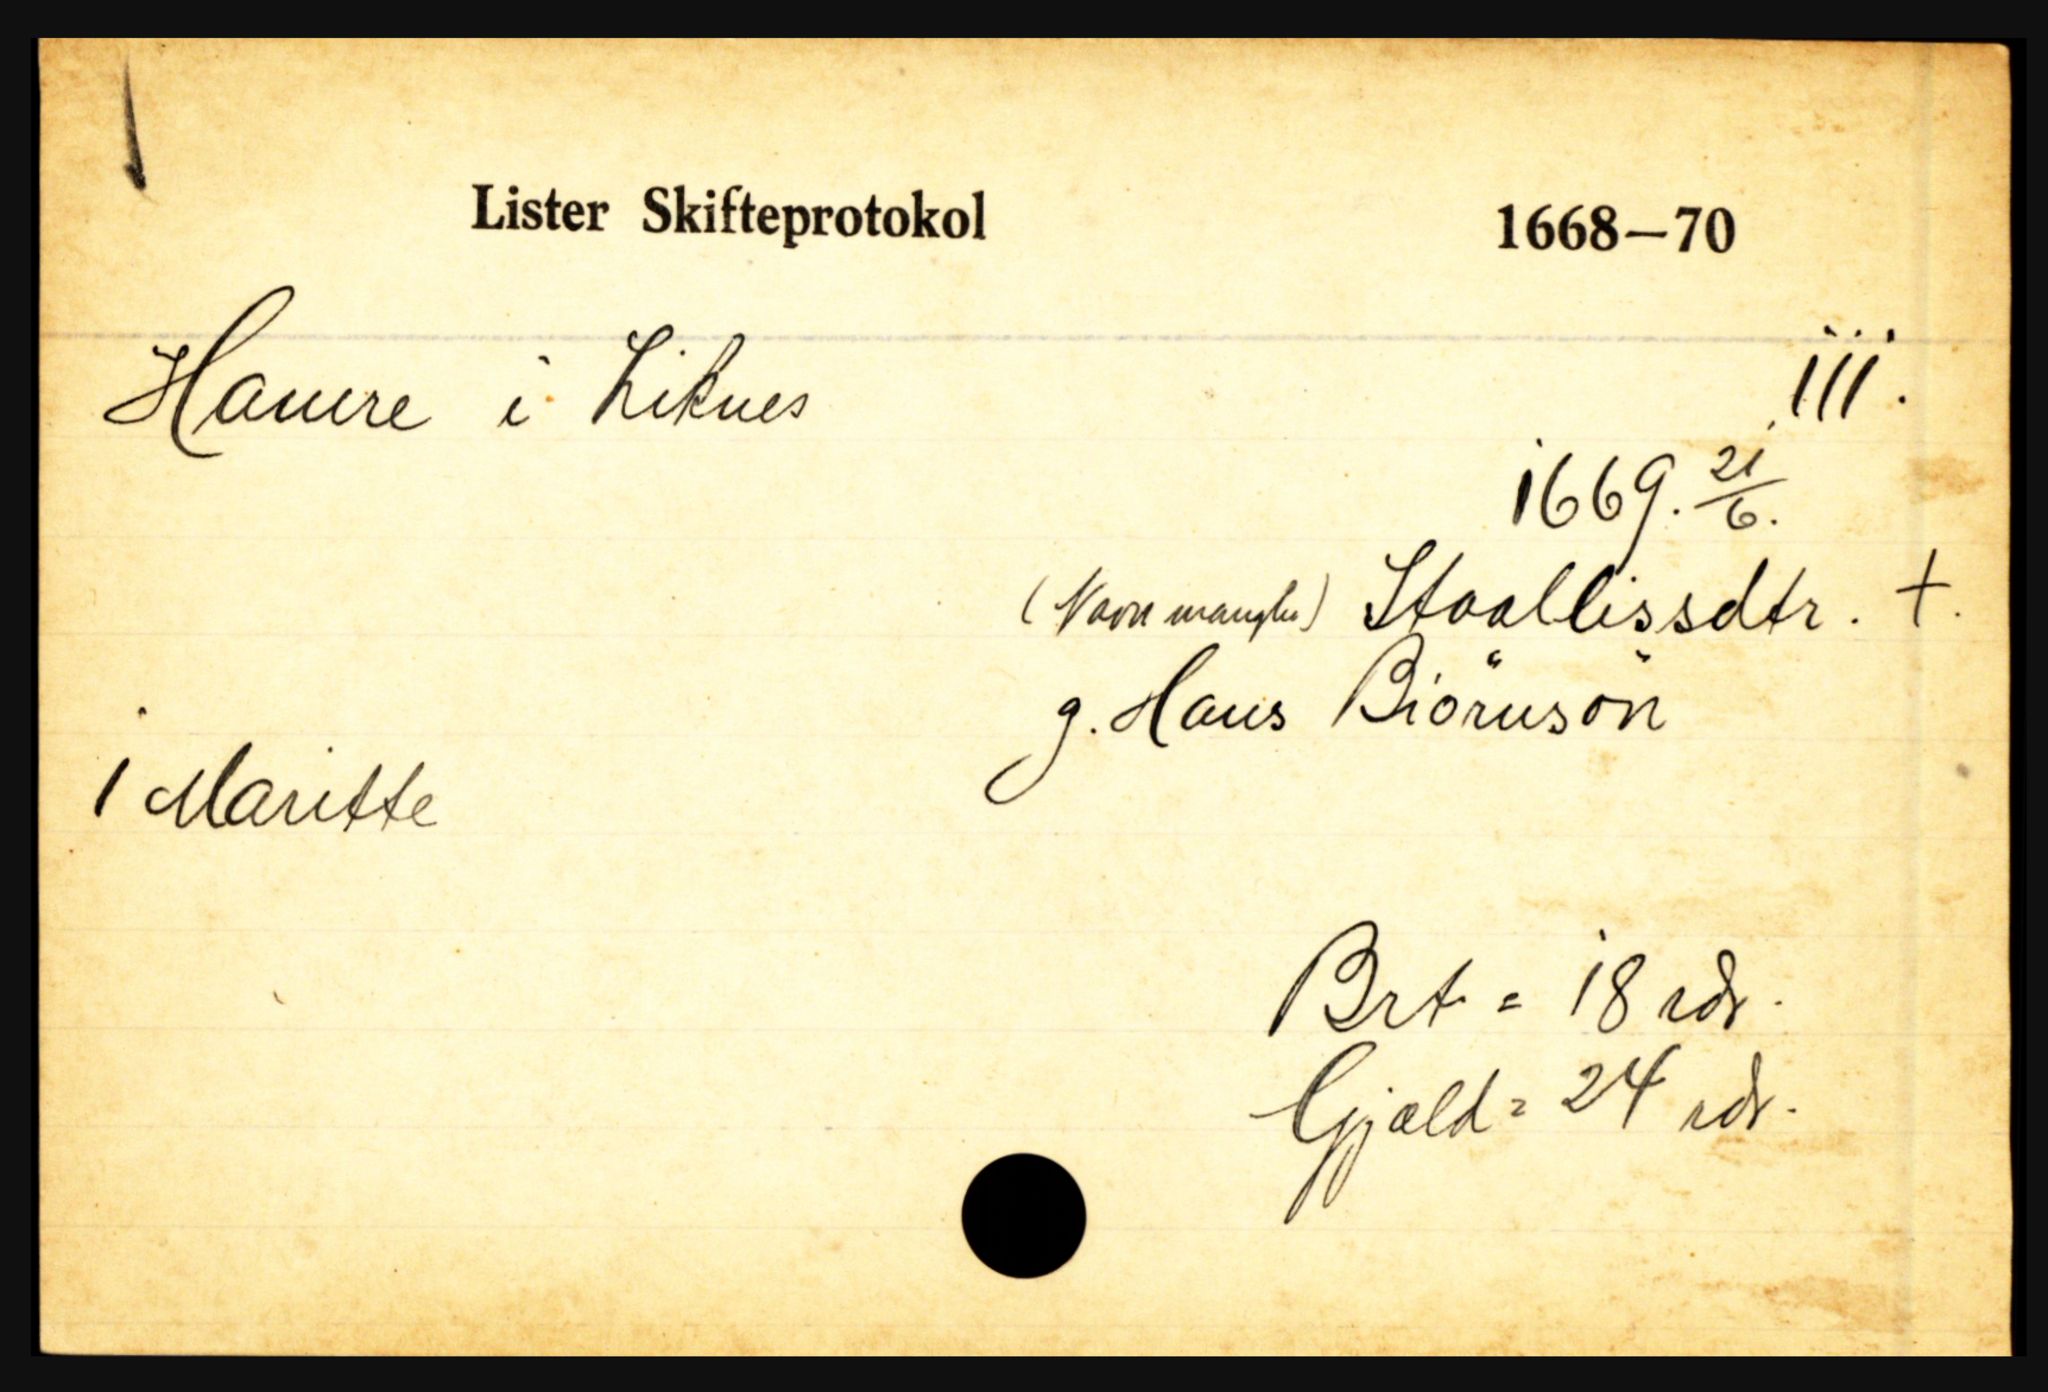 Lister Skifteprotokol 1668–70
Hamre i Liknes 111.
1669. 21/6.
(Navn mangler) Staallissdtr. +.
g. Hans Biörnsön
1 Maritte
Brt. = 18 rdr.
Gjæld = 24 rdr.